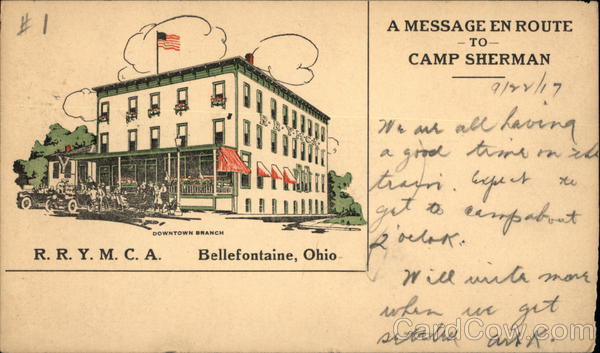 #1
A MESSAGE EN ROUTE
-TO-
CAMP SHERMAN
9/22/17
We are all having
a good time on the
train. Expect to
get to camp about
2 o'clock.
Will write more
when we get
settled
DOWNTOWN BRANCH
R. R. Y. M. C. A. Bellefontaine, Ohio
CardCow.com